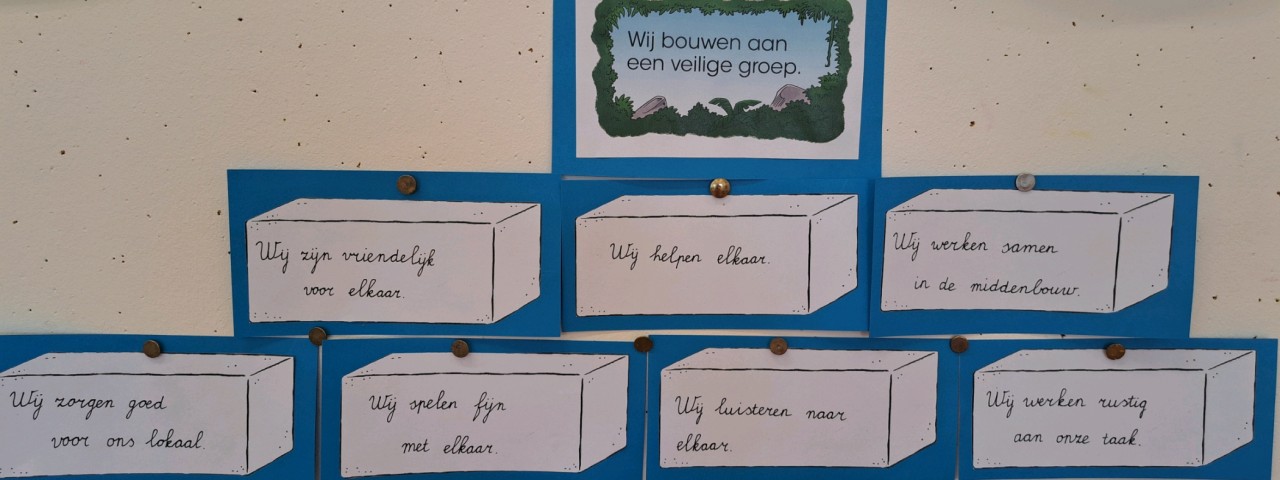 Wij bouwen aan
een veilige groep.
Wij zijn vriendelijk
voor elkaar.
Wij helpen elkaar.
Wij werken samen
in de middenbouw.
Wij zorgen goed
voor ons lokaal.
Wij spelen fijn
met elkaar.
Wij luisteren naar
elkaar.
Wij werken rustig
aan onze taak.